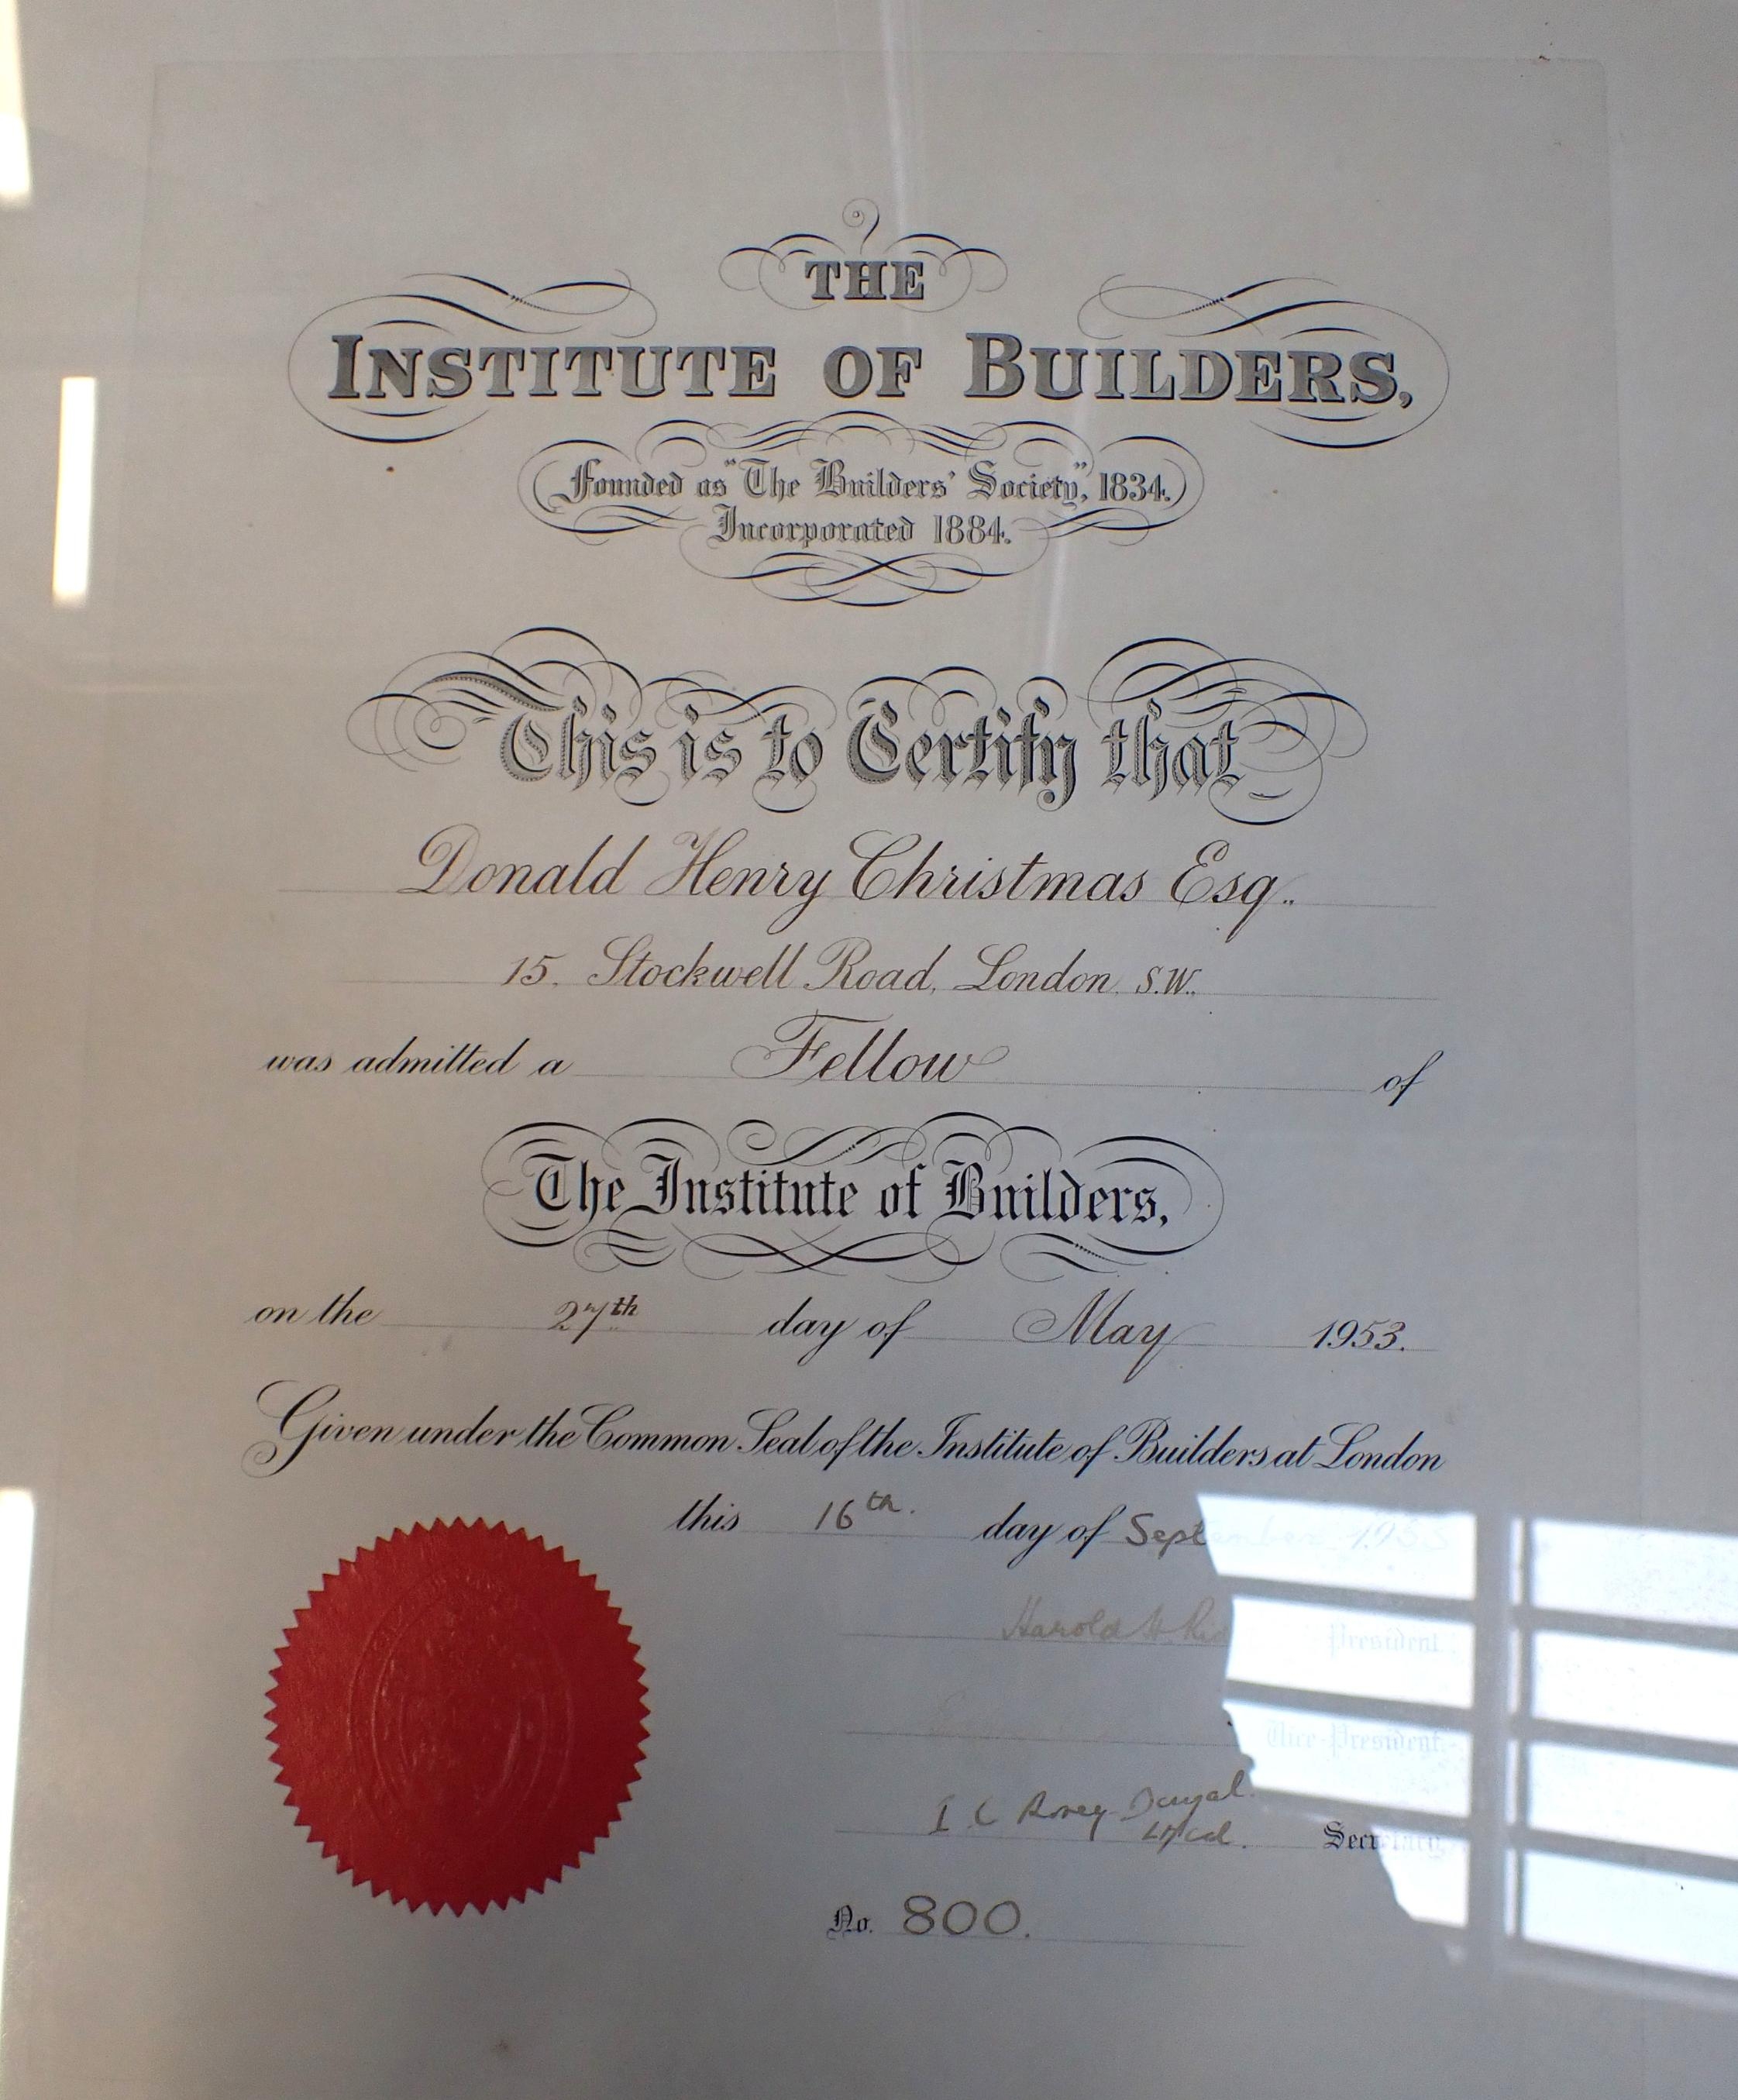 THE
INSTITUTE OF BUILDERS,
Founded as "The Builders' Society," 1834.
Incorporated 1884.
This is to Certify that
Donald Henry Christmas Esq.
15. Stockwell Road, London S.W.
was admitted a Fellow of
The Institute of Builders,
on the 27th day of May 1953.
Given under the Common Seal of the Institute of Builders at London
this 16th. day of September 1953
Harold H. President.
Vice-President.
Secretary.
No. 800.